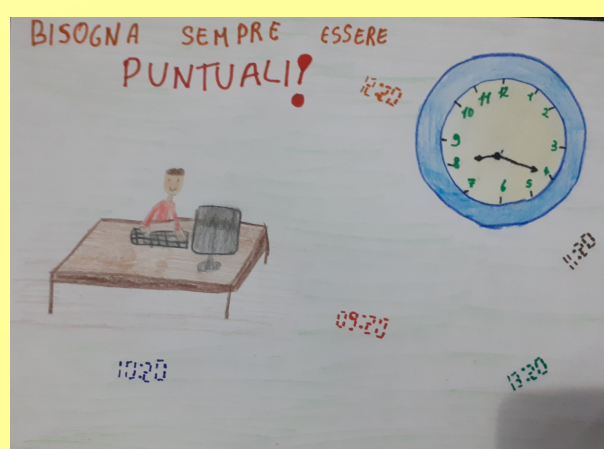 BISOGNA SEMPRE ESSERE
PUNTUALI!
12:20
12
11
1
10
2
9
3
8
4
7
6
5
11:20
09:20
10:20
13:20